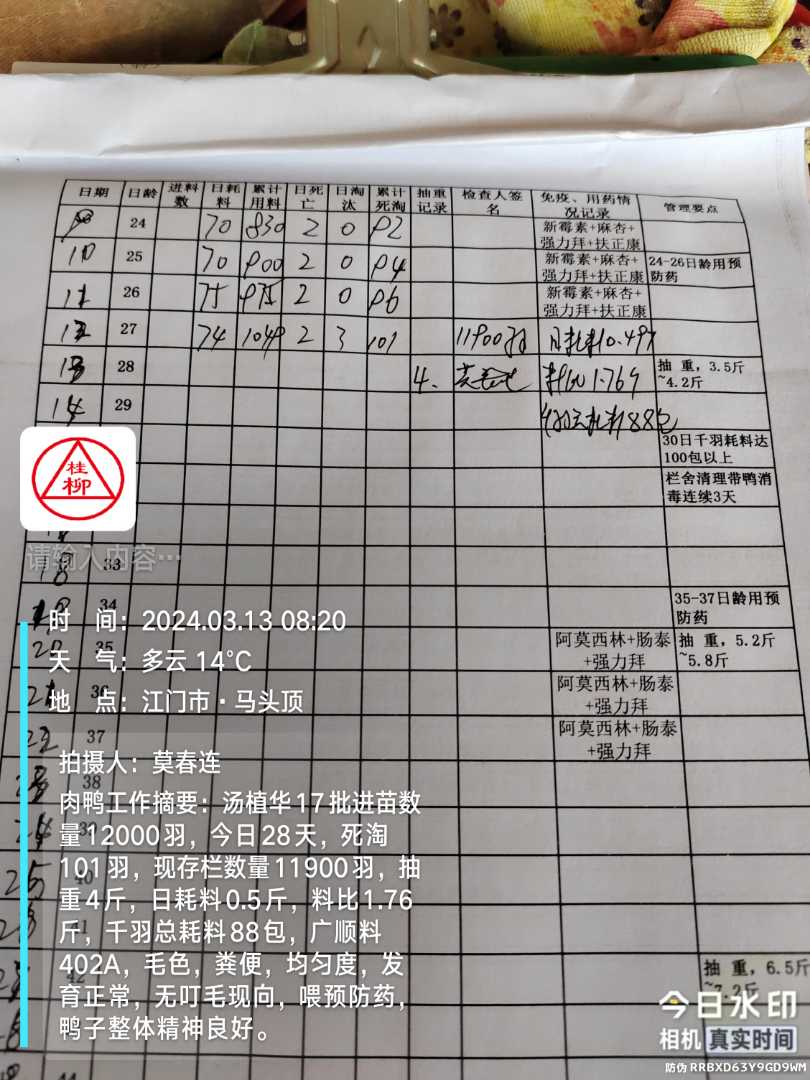 日期 日龄 进料数 日耗料 累计用料 日死亡 日淘汰 累计死淘 抽重记录 检查人签名 免疫、用药情况记录 管理要点
24 70 830 2 0 92 新霉素+麻杏+强力拜+扶正康
10 25 70 900 2 0 94 新霉素+麻杏+强力拜+扶正康 24-26日龄用预防药
11 26 75 975 2 0 96 新霉素+麻杏+强力拜+扶正康
12 27 74 1049 2 3 101 11900羽 日耗料0.497
13 28 4. 料比1.769 抽重，3.5斤~4.2斤
14 29 千羽总耗料88包
30日千羽耗料达100包以上
栏舍清理带鸭消毒连续3天
桂柳
请输入内容…
18 33
19 34 35-37日龄用预防药
20 35 阿莫西林+肠泰+强力拜 抽重，5.2斤~5.8斤
21 36 阿莫西林+肠泰+强力拜
22 37 阿莫西林+肠泰+强力拜
23 38
24 39
25 40
41
42 抽重，6.5斤~7.2斤
44
时间：2024.03.13 08:20
天气：多云 14℃
地点：江门市·马头顶
拍摄人：莫春连
肉鸭工作摘要：汤植华17批进苗数
量12000羽，今日28天，死淘
101羽，现存栏数量11900羽，抽
重4斤，日耗料0.5斤，料比1.76
斤，千羽总耗料88包，广顺料
402A，毛色，粪便，均匀度，发
育正常，无叮毛现向，喂预防药，
鸭子整体精神良好。
今日水印
相机 真实时间
防伪 RRBXD63Y9GD9WM